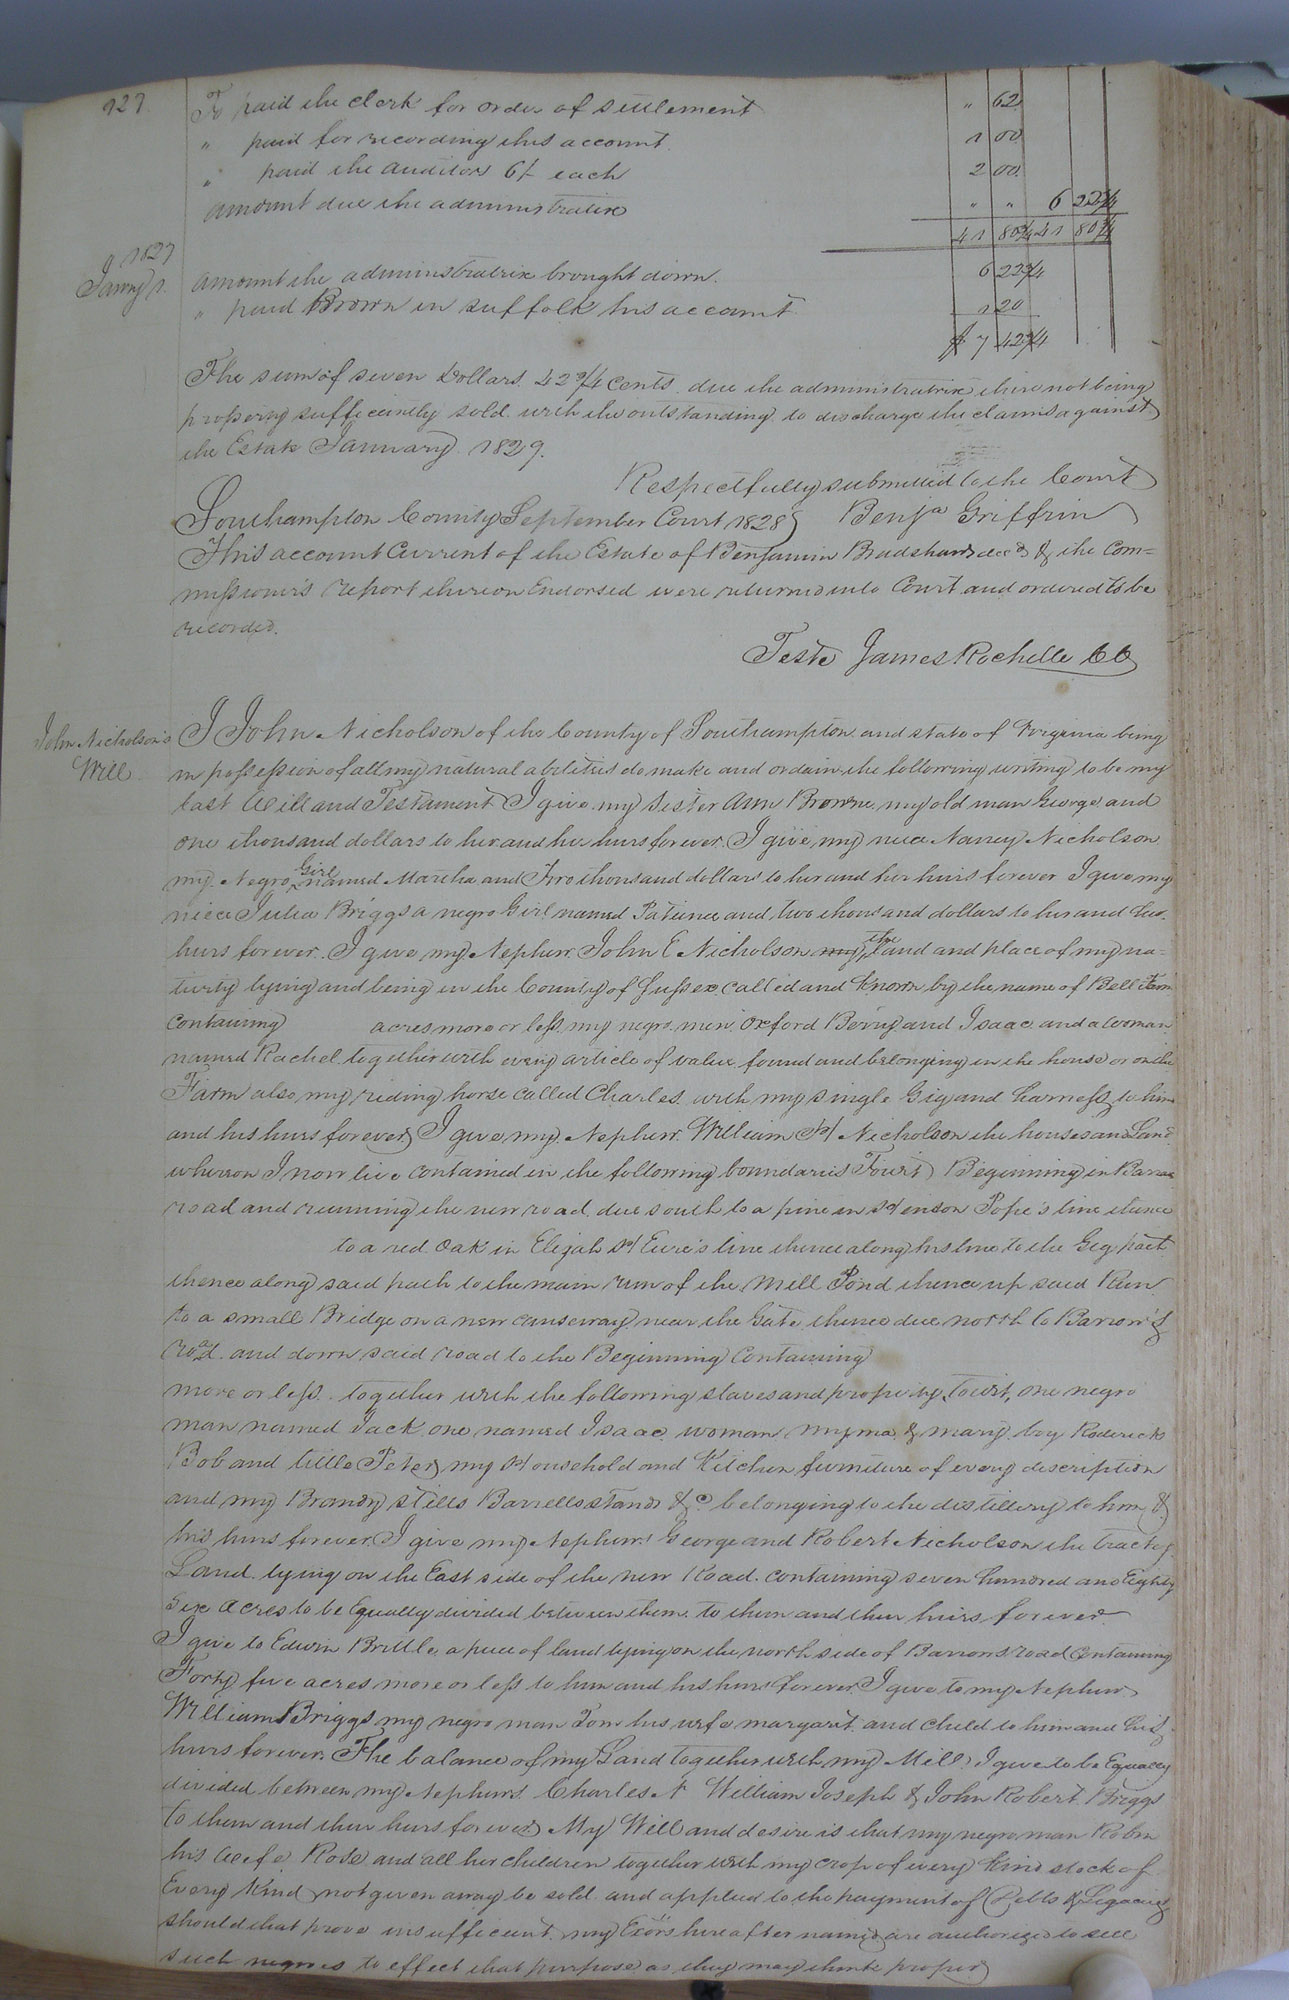 127.
To paid the clerk for order of settlement " 62
" paid for recording this account. 1 00
" paid the auditors 6/ each 2 00
amount due the administratrix " " 6 22 3/4
41 80 3/4 41 80 3/4
1827
Jany 1. amount the administratrix brought down. 6 22 3/4
" paid Brown in suffolk his account 1 20
$ 7 42 3/4
The sum of seven Dollars 42 3/4 cents due the administratrix there not being
property sufficiently sold with the outstanding to discharge the claims against
the Estate January 1829.
Respectfully submitted to the Court
Southampton County September Court 1828 } Benja Griffin
This account Current of the Estate of Benjamin Bradshaw decd & the Com=
missioner's report thereon Endorsed were returned into Court and ordered to be
recorded.
Teste James Rochelle CC
John Nicholson's
Will
I John Nicholson of the County of Southampton and state of Virginia being
in possession of all my natural abilities do make and ordain the following writing to be my
last Will and Testament I give my sister Ann Browne my old man George and
one thousand dollars to her and her heirs forever. I give my niece Nancy Nicholson
my Negro Girl named Martha and Two thousand dollars to her and her heirs forever I give my
niece Julia Briggs a negro Girl named Patience and two thousand dollars to her and her
heirs forever. I give my Nephew John E Nicholson my the land and place of my na=
tivity lying and being in the County of Sussex called and known by the name of Bell Farm
containing acres more or less my negro men Oxford Berry and Isaac and a woman
named Rachel together with every article of value found and belonging in the house or on the
Farm also my riding horse called Charles with my single Gig and harness to him
and his heirs forever I give my Nephew William H Nicholson the houses and Land
whereon I now live contained in the following boundaries Towit) Beginning in Barrow
road and running the new road due south to a pine in Henson Pope's line thence
to a red Oak in Elijah H Eure's line thence along his line to the Gig path
thence along said path to the main run of the Mill Pond thence up said Run
to a small Bridge on a new causeway near the Gate thence due north to Barrow's
road and down said road to the Beginning Containing
more or less together with the following slaves and property, Towit, one negro
man named Jack one named Isaac woman & Mary boy Roderick
Bob and little Peter my Household and Kitchen furniture of every description
and my Brandy stills Barrells stands &c belonging to the distillery to him &
his heirs forever I give my Nephews George and Robert Nicholson the tract of
Land lying on the East side of the new Road containing seven hundred and Eighty
Six Acres to be Equally divided between them to them and their heirs forever
I give to Edwin Brittle a piece of land lying on the north side of Barrons road Containing
Forty five acres more or less to him and his heirs forever I give to my Nephew
William Briggs my negro man Tom his wife margaret and child to him and his
heirs forever. The balance of my Land together with my Mill I give to be Equally
divided between my Nephews Charles William Joseph & John Robert Briggs
to them and their heirs forever My Will and desire is that my negro man Robin
his Wife Rose and all her children together with my crop of every kind stock of
Every Kind not given away be sold and applied to the payment of Debts & Legacies
should that prove insufficient my Exors hereafter named are authorized to sell
such negroes to effect that purpose as they may think proper